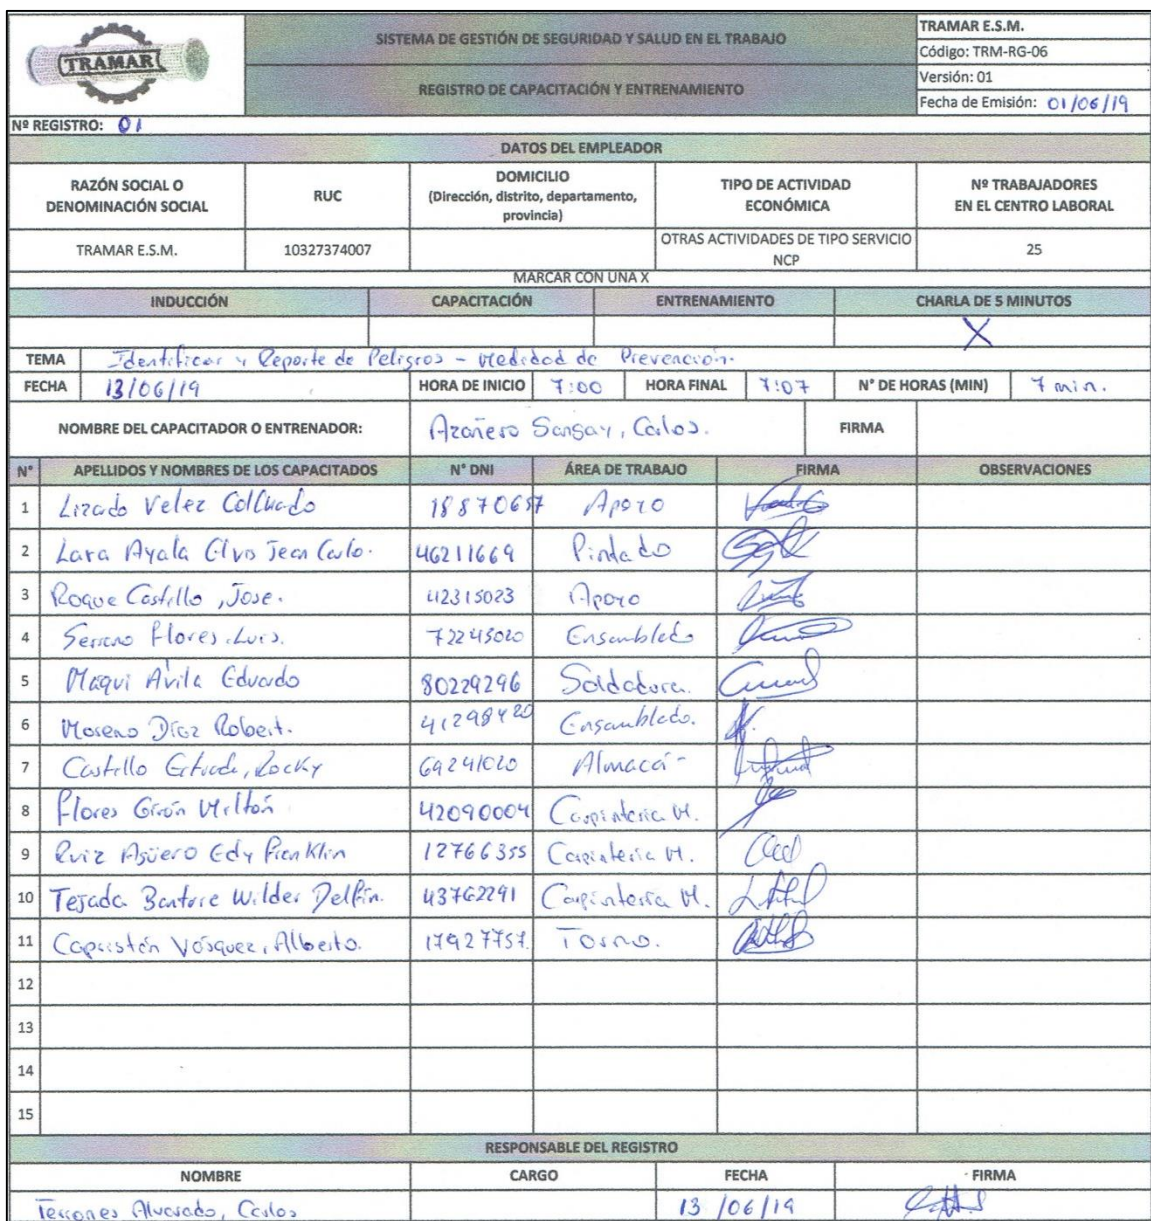 TRAMAR
SISTEMA DE GESTIÓN DE SEGURIDAD Y SALUD EN EL TRABAJO
REGISTRO DE CAPACITACIÓN Y ENTRENAMIENTO
TRAMAR E.S.M.
Código: TRM-RG-06
Versión: 01
Fecha de Emisión: 01/06/19
Nº REGISTRO: 01
DATOS DEL EMPLEADOR
RAZÓN SOCIAL O DENOMINACIÓN SOCIAL RUC DOMICILIO (Dirección, distrito, departamento, provincia) TIPO DE ACTIVIDAD ECONÓMICA Nº TRABAJADORES EN EL CENTRO LABORAL
TRAMAR E.S.M. 10327374007 OTRAS ACTIVIDADES DE TIPO SERVICIO NCP 25
MARCAR CON UNA X
INDUCCIÓN CAPACITACIÓN ENTRENAMIENTO CHARLA DE 5 MINUTOS
X
TEMA Identificar y Reporte de Peligros - Medidad de Prevención.
FECHA 13/06/19 HORA DE INICIO 7:00 HORA FINAL 7:07 N° DE HORAS (MIN) 7 min.
NOMBRE DEL CAPACITADOR O ENTRENADOR: Azañero Sangay, Carlos. FIRMA
N° APELLIDOS Y NOMBRES DE LOS CAPACITADOS N° DNI ÁREA DE TRABAJO FIRMA OBSERVACIONES
1 Lizado Velez Colchado 18870657 Apoyo
2 Lara Ayala Elvis Jean Carlo. 46211669 Pintado
3 Roque Castillo, Jose. 42315023 Apoyo
4 Serrano Flores, Luis. 72245020 Ensamblado
5 Maqui Avila Eduardo 80229296 Soldadura.
6 Moreno Díaz Robert. 41298420 Ensamblado.
7 Castillo Rocky 69241020 Almacén
8 Flores Girón Milton 42090004 Carpintería M.
9 Ruiz Agüero Edy Franklin 12766355 Carpintería M.
10 Tejada Wilder Delfín. 43762291 Carpintería M.
11 Vásquez, Alberto. 17927757. Torno.
12
13
14
15
RESPONSABLE DEL REGISTRO
NOMBRE CARGO FECHA FIRMA
Terrones Alvarado, Carlos 13/06/19